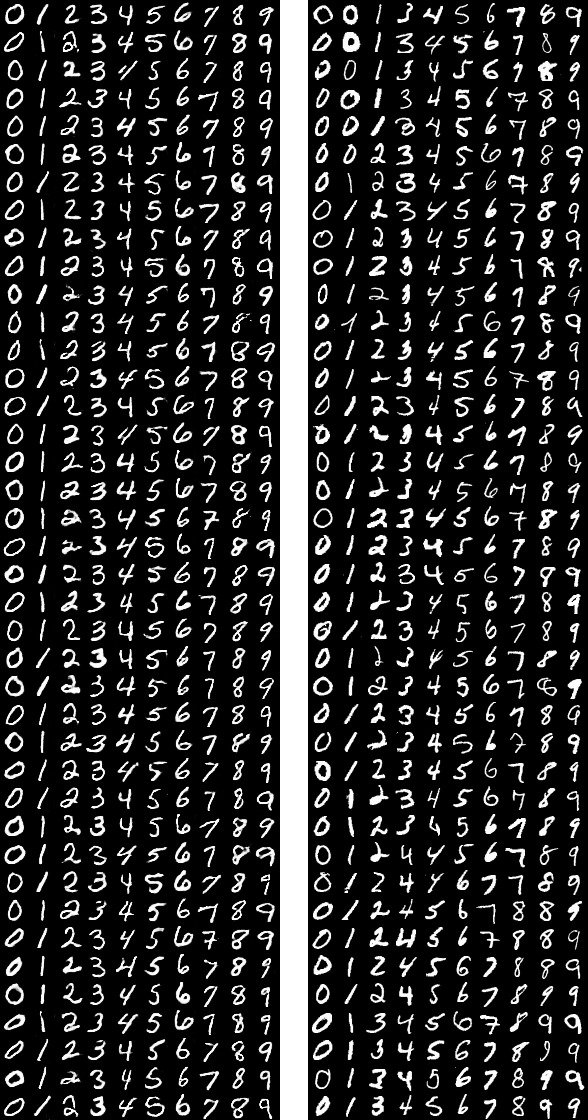 0 1 2 3 4 5 6 7 8 9
0 1 2 3 4 5 6 7 8 9
0 1 2 3 4 5 6 7 8 9
0 1 2 3 4 5 6 7 8 9
0 1 2 3 4 5 6 7 8 9
0 1 2 3 4 5 6 7 8 9
0 1 2 3 4 5 6 7 8 9
0 1 2 3 4 5 6 7 8 9
0 1 2 3 4 5 6 7 8 9
0 1 2 3 4 5 6 7 8 9
0 1 2 3 4 5 6 7 8 9
0 1 2 3 4 5 6 7 8 9
0 1 2 3 4 5 6 7 8 9
0 1 2 3 4 5 6 7 8 9
0 1 2 3 4 5 6 7 8 9
0 1 2 3 4 5 6 7 8 9
0 1 2 3 4 5 6 7 8 9
0 1 2 3 4 5 6 7 8 9
0 1 2 3 4 5 6 7 8 9
0 1 2 3 4 5 6 7 8 9
0 1 2 3 4 5 6 7 8 9
0 1 2 3 4 5 6 7 8 9
0 1 2 3 4 5 6 7 8 9
0 1 2 3 4 5 6 7 8 9
0 1 2 3 4 5 6 7 8 9
0 1 2 3 4 5 6 7 8 9
0 1 2 3 4 5 6 7 8 9
0 1 2 3 4 5 6 7 8 9
0 1 2 3 4 5 6 7 8 9
0 1 2 3 4 5 6 7 8 9
0 1 2 3 4 5 6 7 8 9
0 1 2 3 4 5 6 7 8 9
0 1 2 3 4 5 6 7 8 9
0 1 2 3 4 5 6 7 8 9
0 1 2 3 4 5 6 7 8 9
0 1 2 3 4 5 6 7 8 9
0 1 2 3 4 5 6 7 8 9
0 1 2 3 4 5 6 7 8 9
0 1 2 3 4 5 6 7 8 9
0 1 2 3 4 5 6 7 8 9
0 0 1 3 4 5 6 7 8 9
0 0 1 3 4 5 6 7 8 9
0 0 1 3 4 5 6 7 8 9
0 0 1 3 4 5 6 7 8 9
0 0 1 3 4 5 6 7 8 9
0 0 2 3 4 5 6 7 8 9
0 1 2 3 4 5 6 7 8 9
0 1 2 3 4 5 6 7 8 9
0 1 2 3 4 5 6 7 8 9
0 1 2 3 4 5 6 7 8 9
0 1 2 3 4 5 6 7 8 9
0 1 2 3 4 5 6 7 8 9
0 1 2 3 4 5 6 7 8 9
0 1 2 3 4 5 6 7 8 9
0 1 2 3 4 5 6 7 8 9
0 1 2 3 4 5 6 7 8 9
0 1 2 3 4 5 6 7 8 9
0 1 2 3 4 5 6 7 8 9
0 1 2 3 4 5 6 7 8 9
0 1 2 3 4 5 6 7 8 9
0 1 2 3 4 5 6 7 8 9
0 1 2 3 4 5 6 7 8 9
0 1 2 3 4 5 6 7 8 9
0 1 2 3 4 5 6 7 8 9
0 1 2 3 4 5 6 7 8 9
0 1 2 3 4 5 6 7 8 9
0 1 2 3 4 5 6 7 8 9
0 1 2 3 4 5 6 7 8 9
0 1 2 3 4 5 6 7 8 9
0 1 2 3 4 5 6 7 8 9
0 1 2 4 4 5 6 7 8 9
0 1 2 4 4 6 7 7 8 9
0 1 2 4 5 6 7 8 8 9
0 1 2 4 5 6 7 8 8 9
0 1 2 4 5 6 7 8 8 9
0 1 2 4 5 6 7 8 9 9
0 1 3 4 5 6 7 8 9 9
0 1 3 4 5 6 7 8 9 9
0 1 3 4 5 6 7 8 9 9
0 1 3 4 5 6 7 8 9 9